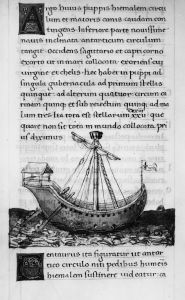 Argo huius puppis hiemalem circu
lum et maioris canis caudam con
tingens. Inferiore parte nonissime
nauis inclinata antarcticum circulum
tangit. Occidens sagittario et capricorno
exorto ut in mari collocata. exoriens cu
uirgine et chelis. Hec habet in puppi ad
singula gubernacula ad primum stellas
quinque. ad alterum quatuor. circum ca
rinam quinque. et sub
lum tres. Ita tota est stellarum XXVI. que
quare non sit tota in mundo collocata. pri
us diximus
Centaurus ita figuratur ut antar
tico circulo niti pedibus humeris
hiemalem sustinere uideatur. ca